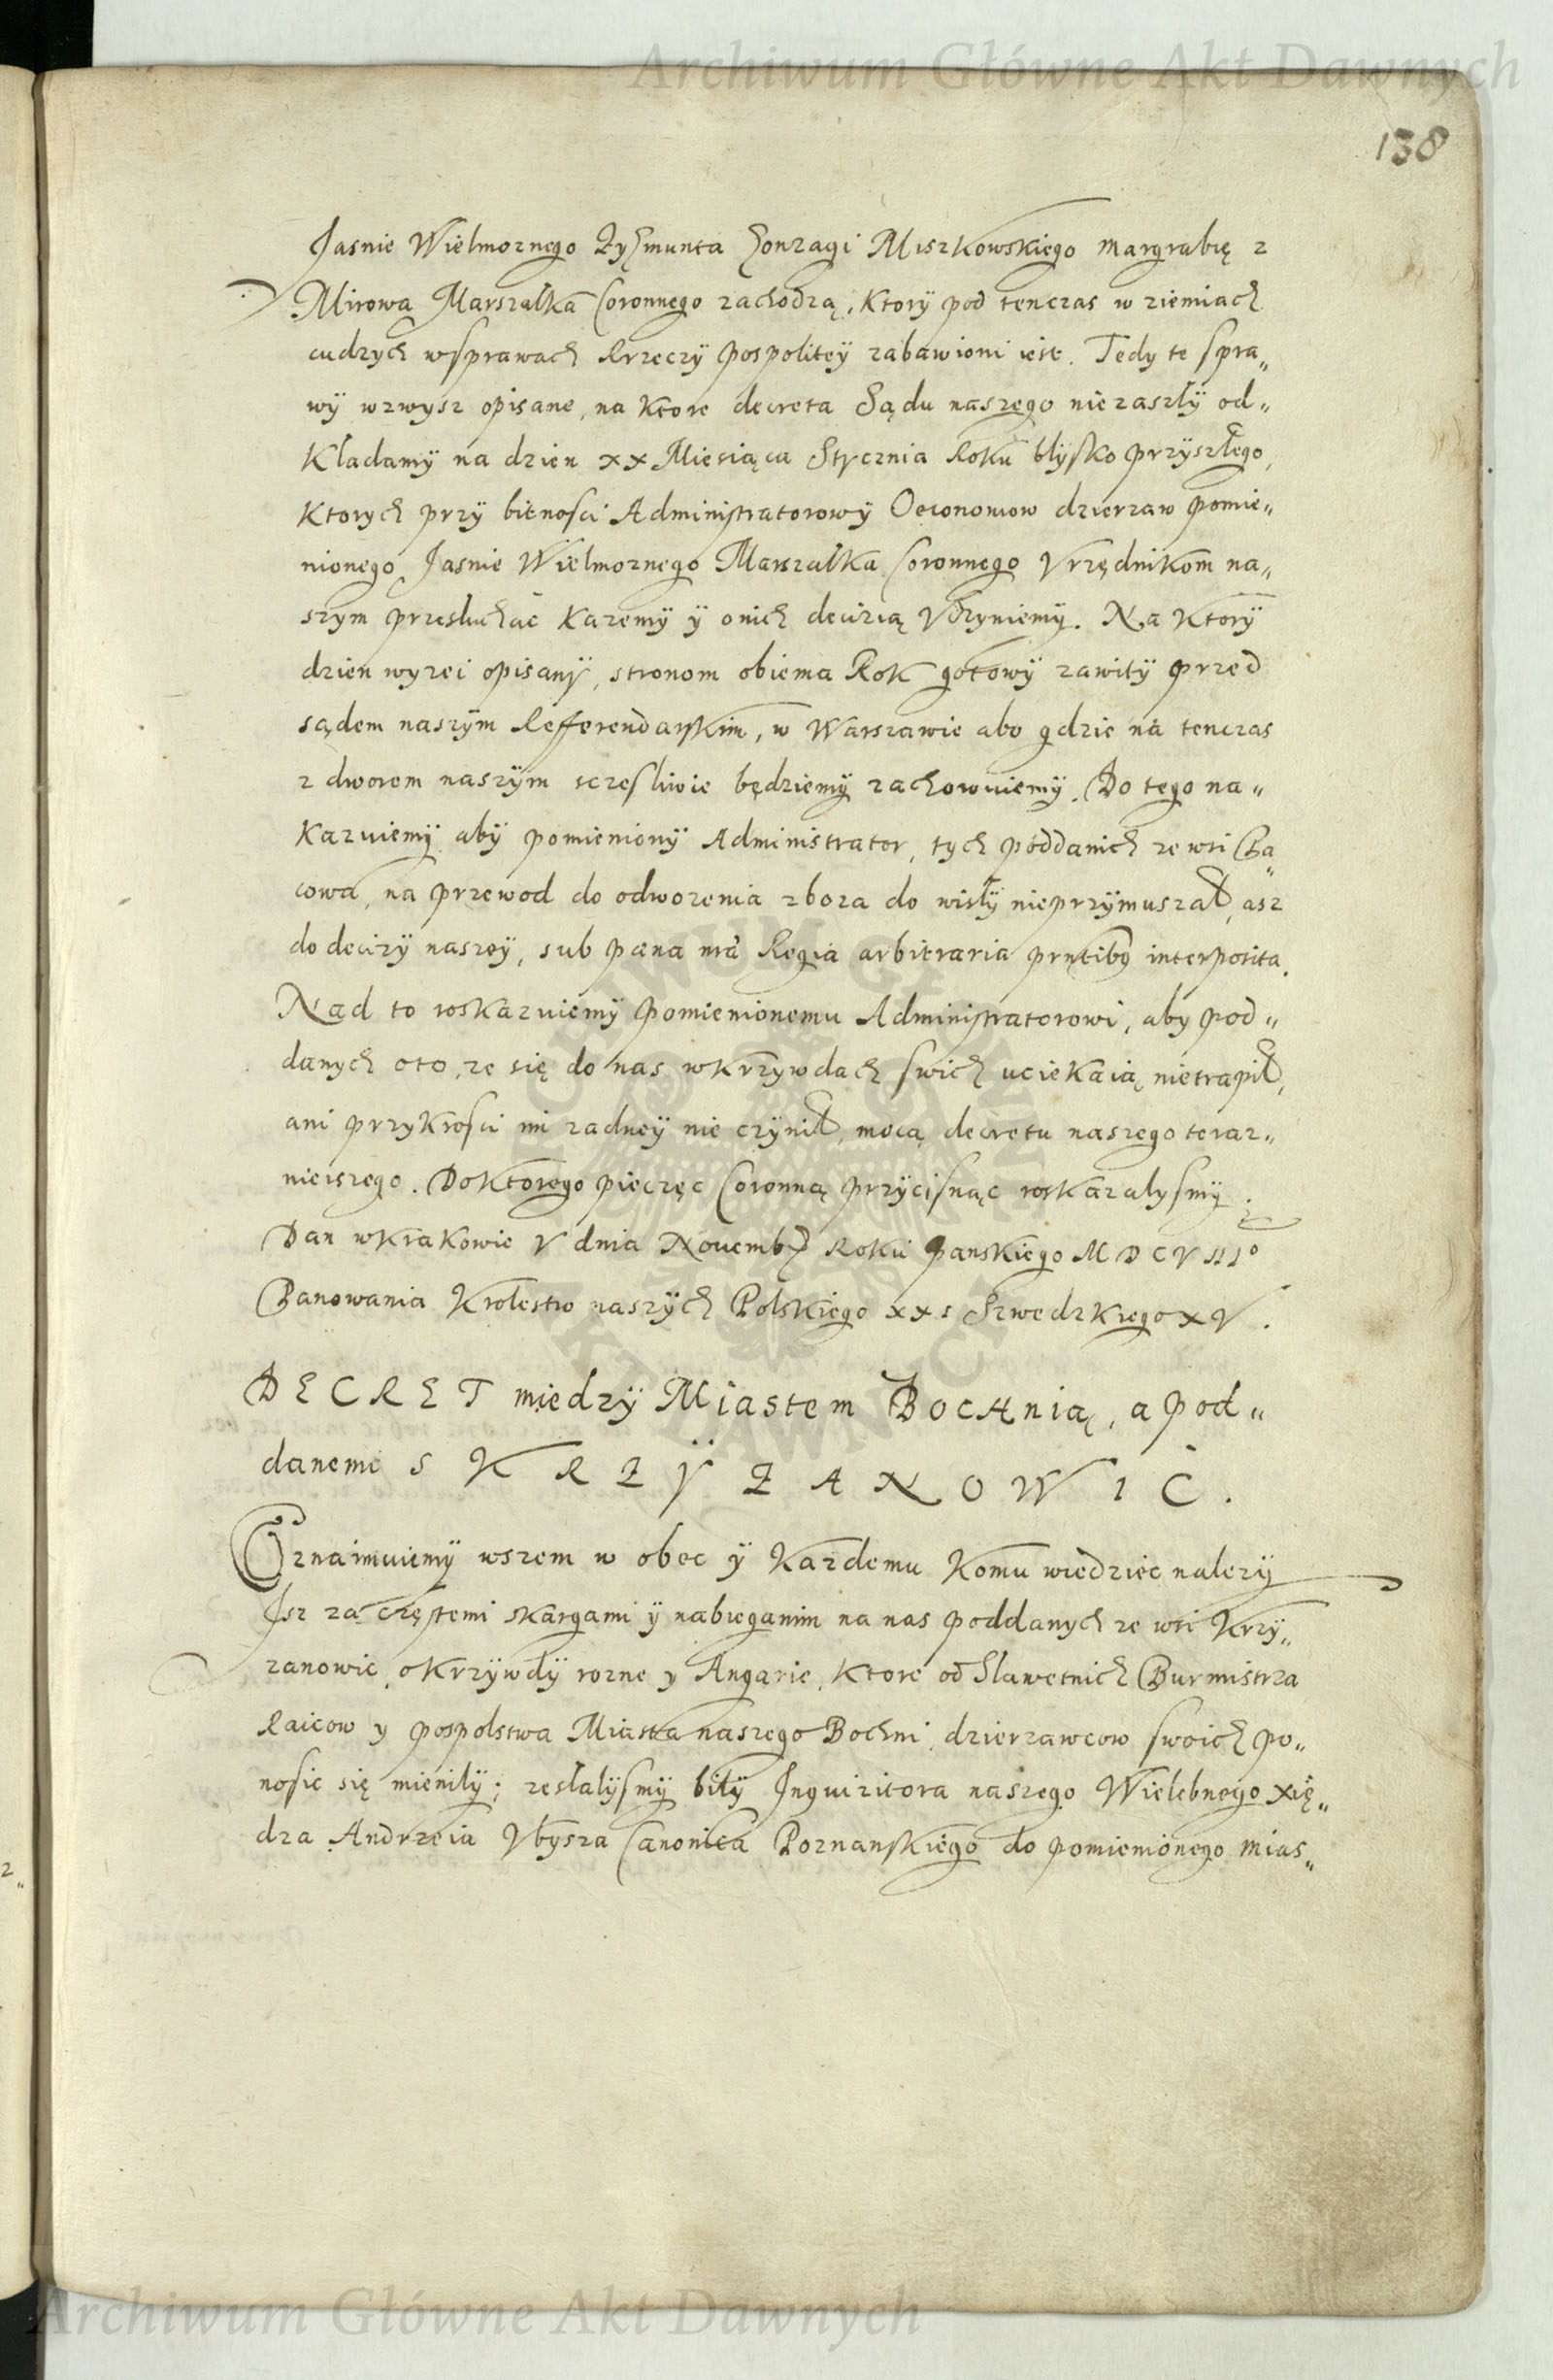 Archiwum Główne Akt Dawnych
138
Jasnie Wielmoznego Zygmunta Gonzagi Miszkowskiego margrabię z
Mirowa Marszałka Coronnego zachodzą, Ktorÿ pod tenczas w ziemiach
cudzych w sprawach Rzeczÿ pospoliteÿ zabawioni iest. Tedy te spra„
wÿ wzwysz opisane, na Ktore decreta Sądu naszego niezaszłÿ od„
Kładamÿ na dzien xx Miesiąca Stycznia Roku blysko przyszłego,
Ktorych przy bitnosci Administratorowÿ Oeconomow dzierzaw pomie„
nionego Jasnie Wielmoznego Marszałka Coronnego Vrzędnikom na„
szym przesłuchac Kazemÿ ÿ onich decizią Vczyniemÿ. Na Ktorÿ
dzien wyzei opisanÿ, stronom obiema Rok gotowÿ zawitÿ przed
sądem naszÿm Refferendarskim, w Warszawie abo gdzie na tenczas
z dworem naszÿm sczesliwie będziemÿ zachowuiemÿ. Do tego na„
Kazuiemÿ abÿ pomienionÿ Administrator, tych poddanich ze wsi Ba„
cowa, na przewod do odwozenia zboza do wisłÿ nieprzÿmuszał, asz
do decizÿ naszeÿ, sub pæna nra Regia arbitraria prntibus interposita.
Nad to roskazuiemÿ pomienionemu Administratorowi, aby pod„
danych oto, ze się do nas w krzywdach swich uciekaią nietrapił,
ani przykrosci im zadneÿ nie czÿnił, mocą decretu naszego teraz„
nieiszego. Do Ktorego pieczęc Coronną przÿcisnąc roskazalysmÿ.
Dan w Krakowie V dnia Novembr Roku panskiego MDCVIIIo
Panowania Krolestw naszÿch Polskiego xxi Szwedzkiego XV.
DECRET międzÿ Miastem BOCHnią, a pod„
danemi S KRZŸZANOWIC.
Oznaimuiemÿ wszem w obec ÿ Kazdemu Komu wiedziec nalezÿ
Isz za częstemi skargami ÿ nabieganim na nas poddanych ze wsi Krzÿ„
zanowic, o Krzÿwdÿ rozne y Angarie, Ktore od Slawetnich Burmistrza
Raicow y pospolstwa Miasta naszego Bochni, dzierzawcow swoich po„
nosic się mienilÿ; zesłalÿsmÿ bilÿ Inquizitora naszego Wielebnego xię„
dza Andrzeia Vbysza Canonica Poznanskiego do pomienionego mias„
Archiwum Główne Akt Dawnych